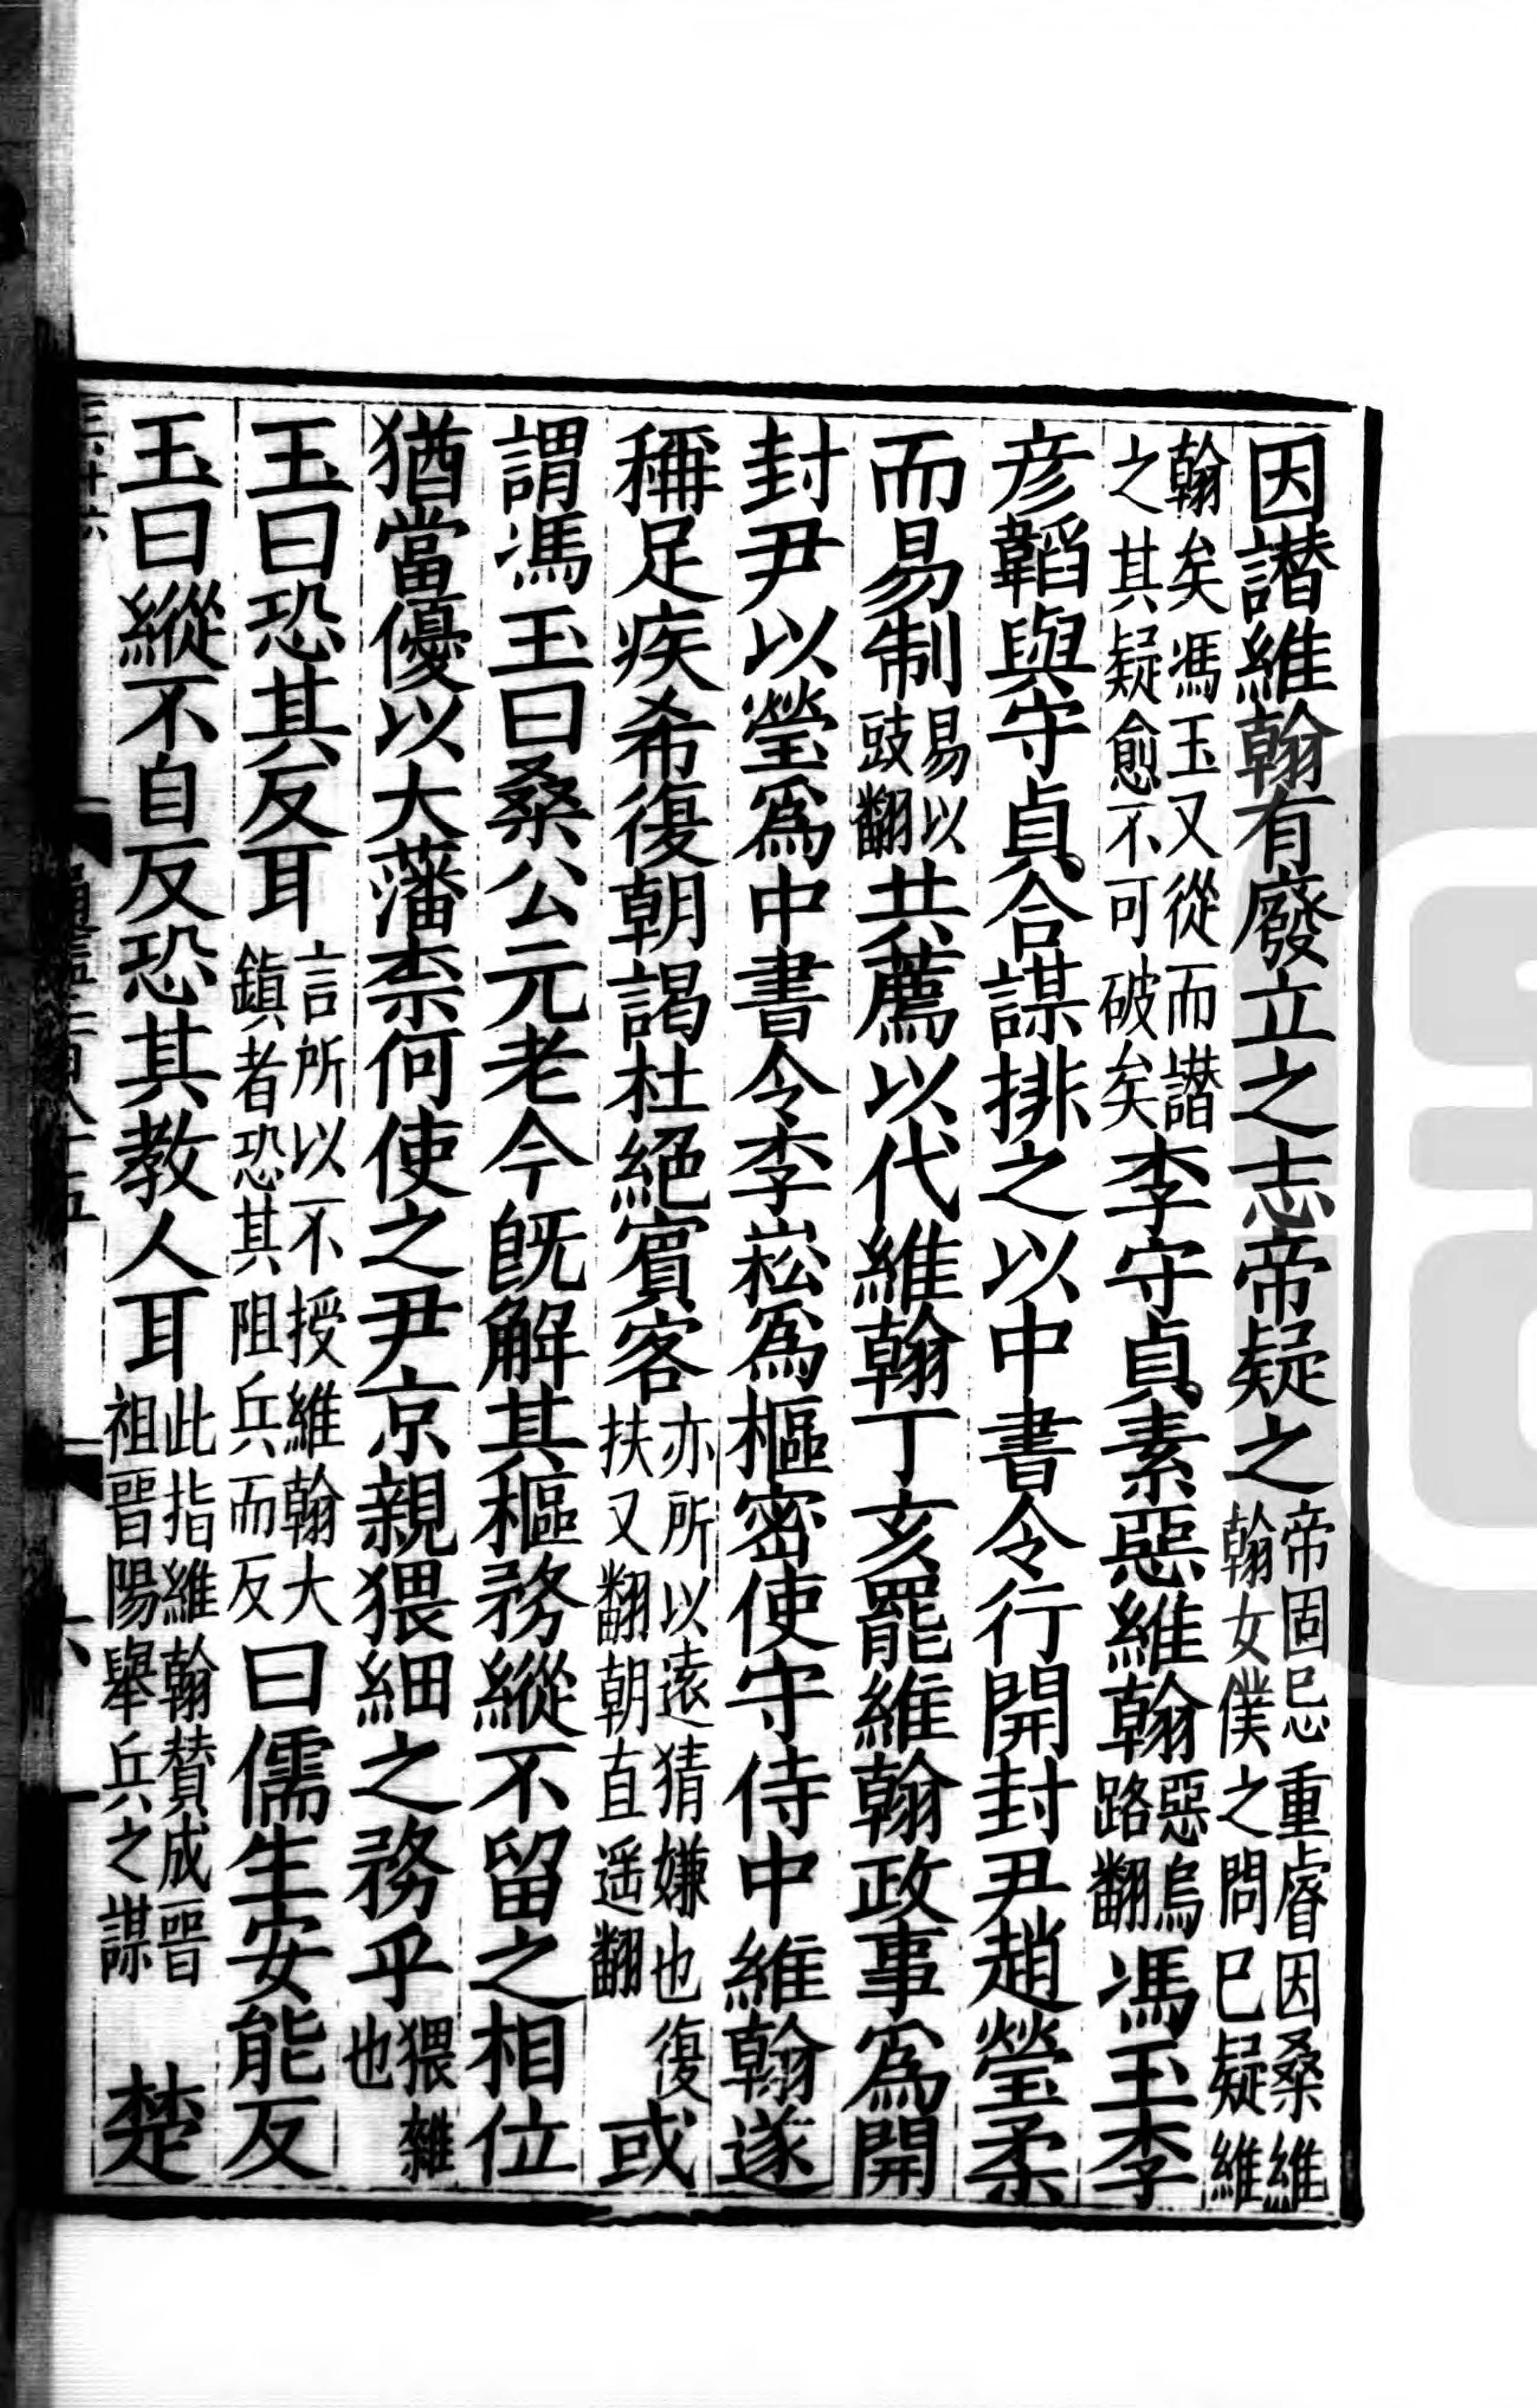 因譖維翰有廢立之志帝疑之帝固忌重睿因桑維翰女僕之問巳疑維
翰矣馮玉又從而譖之其疑愈不可破矣李守貞素惡維翰惡烏路翻馮玉李
彦韜與守貞合謀排之以中書令行開封尹趙瑩柔
而易制易以豉翻共薦以代維翰丁亥罷維翰政事為開
封尹以瑩為中書令李崧為樞密使守侍中維翰遂
稱足疾希復朝謁杜絕賓客亦所以逺猜嫌也復扶又翻朝直遥翻或
謂馮玉曰桑公元老今旣解其樞務縱不留之相位
猶當優以大藩柰何使之尹京親猥細之務乎猥雜也
玉曰恐其反耳言所以不授維翰大鎮者恐其阻兵而反曰儒生安能反
玉曰縱不自反恐其教人耳此指維翰賛成晉祖晉陽舉兵之謀楚